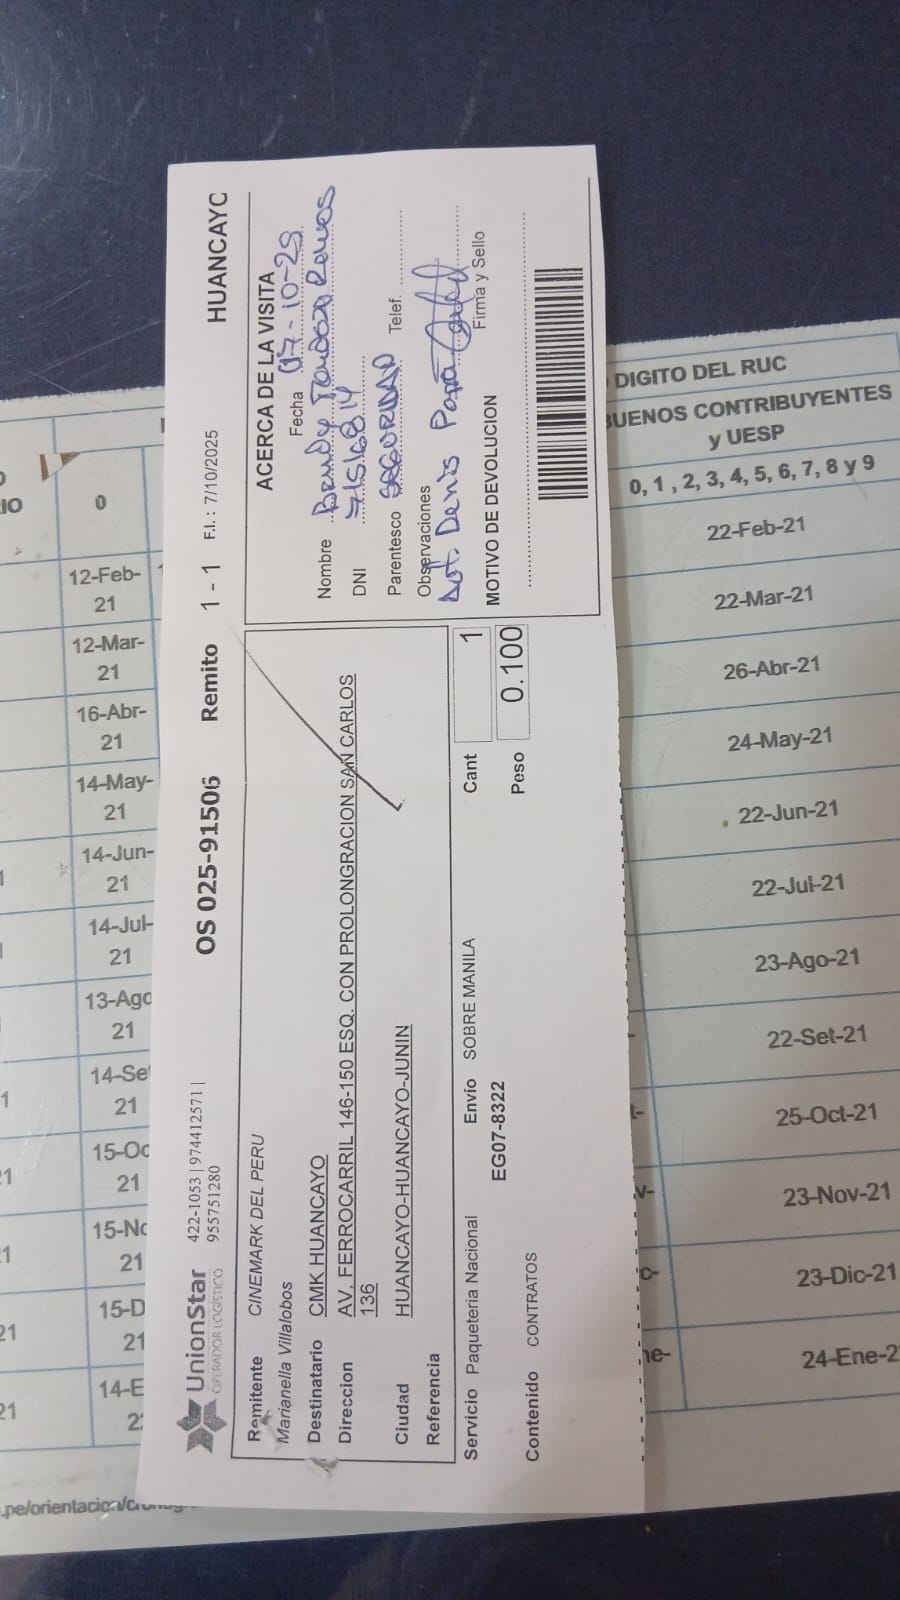 UnionStar
OPERADOR LOGÍSTICO
422-1053 | 974412571 |
955751280
OS 025-91506
Remito 1 - 1
F.I. : 7/10/2025
HUANCAYO
Remitente CINEMARK DEL PERU
Marianella Villalobos
Destinatario CMK HUANCAYO
Direccion AV. FERROCARRIL 146-150 ESQ. CON PROLONGRACION SAN CARLOS
136
Ciudad HUANCAYO-HUANCAYO-JUNIN
Referencia
Servicio Paqueteria Nacional Envío SOBRE MANILA Cant 1
EG07-8322
Peso 0.100
Contenido CONTRATOS
ACERCA DE LA VISITA
Fecha 07-10-25
Nombre
DNI
Parentesco SEGURIDAD Telef.
Observaciones
Denis
Firma y Sello
MOTIVO DE DEVOLUCION
DIGITO DEL RUC
BUENOS CONTRIBUYENTES
y UESP
0, 1, 2, 3, 4, 5, 6, 7, 8 y 9
22-Feb-21
22-Mar-21
26-Abr-21
24-May-21
22-Jun-21
22-Jul-21
23-Ago-21
22-Set-21
25-Oct-21
23-Nov-21
23-Dic-21
24-Ene-2
IO
0
12-Feb-
21
12-Mar-
21
16-Abr-
21
14-May-
21
14-Jun-
21
14-Jul-
21
13-Ago
21
14-Se
21
15-Oc
21
15-No
21
15-D
21
14-E
2
.pe/orientacion/